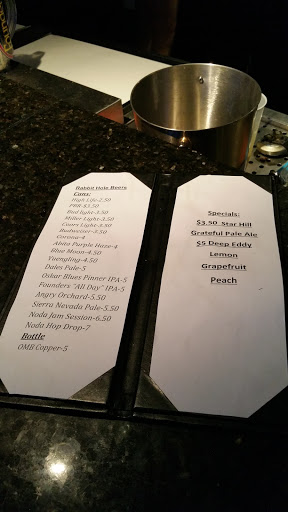 Rabbit Hole Beers
Cans:
High Life-2.50
PBR-$3.50
Bud light-3.50
Miller Light-3.50
Coors Light-3.50
Budweiser-3.50
Corona-4
Abita Purple Haze-4
Blue Moon-4.50
Yuengling-4.50
Dales Pale-5
Oskar Blues Pinner IPA-5
Founders "All Day" IPA-5
Angry Orchard-5.50
Sierra Nevada Pale-5.50
Noda Jam Session-6.50
Noda Hop Drop-7
Bottle
OMB Copper-5
Specials:
$3.50 Star Hill
Grateful Pale Ale
$5 Deep Eddy
Lemon
Grapefruit
Peach